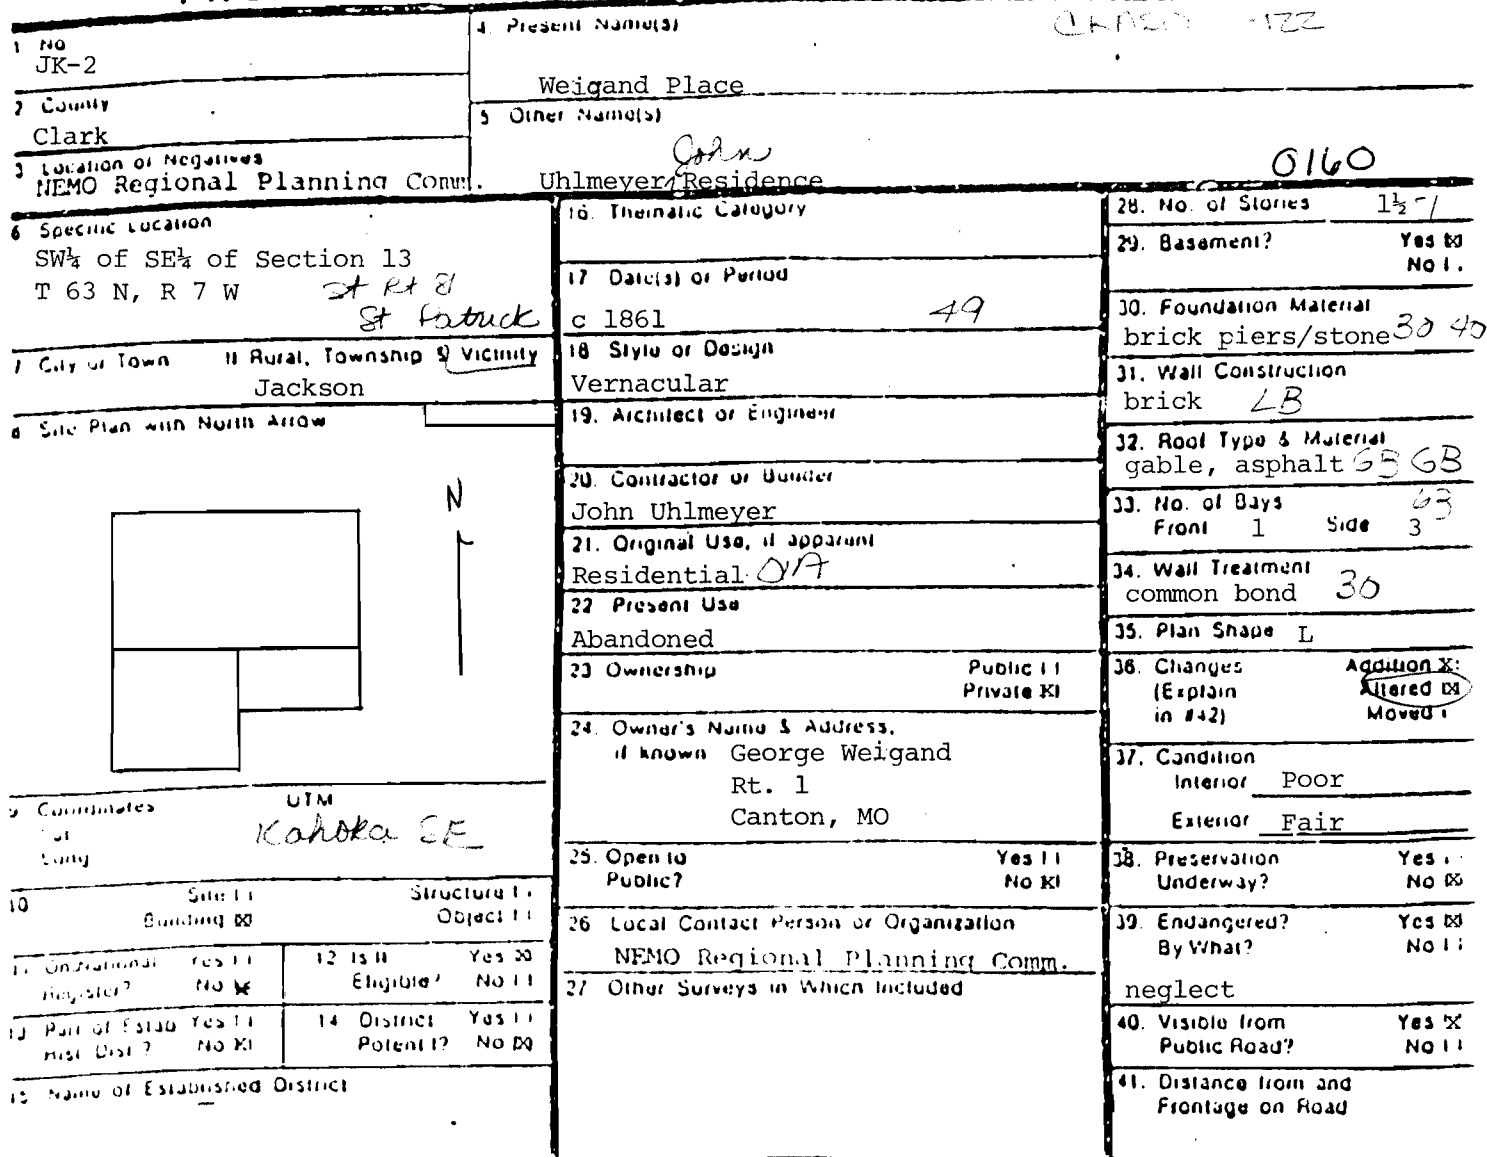 1 No
JK-2
4. Present Name(s)
Weigand Place
2 County
Clark
5 Other Name(s)
John
Uhlmeyer Residence
0160
3 Location of Negatives
NEMO Regional Planning Comm.
6 Specific Location
SW¼ of SE¼ of Section 13
T 63 N, R 7 W
St Rt 81
St Patrick
7 City or Town If Rural, Township & Vicinity
Jackson
8 Site Plan with North Arrow
N
9 Coordinates UTM
Lat
Long
Kahoka SE
10 Site Structure
Building ☒ Object
11 On National Register? Yes No ☒
12 Is It Eligible? Yes ☒ No
13 Part of Estab Hist. Dist.? Yes No ☒
14 District Potent'l? Yes No ☒
15 Name of Established District
16. Thematic Category
17 Date(s) or Period
c 1861 49
18 Style or Design
Vernacular
19. Architect or Engineer
20. Contractor or Builder
John Uhlmeyer
21. Original Use, if apparent
Residential 01A
22 Present Use
Abandoned
23 Ownership Public
Private ☒
24. Owner's Name & Address,
if known George Weigand
Rt. 1
Canton, MO
25. Open to Yes
Public? No ☒
26 Local Contact Person or Organization
NEMO Regional Planning Comm.
27 Other Surveys in Which Included
28. No. of Stories 1½
29. Basement? Yes ☒
No
30. Foundation Material
brick piers/stone 30 40
31. Wall Construction
brick LB
32. Roof Type & Material
gable, asphalt GB
33. No. of Bays 63
Front 1 Side 3
34. Wall Treatment
common bond 30
35. Plan Shape L
36. Changes Addition X
(Explain Altered ☒
in #42) Moved
37. Condition
Interior Poor
Exterior Fair
38. Preservation Yes
Underway? No ☒
39. Endangered? Yes ☒
By What? No
neglect
40. Visible from Yes X
Public Road? No
41. Distance from and
Frontage on Road